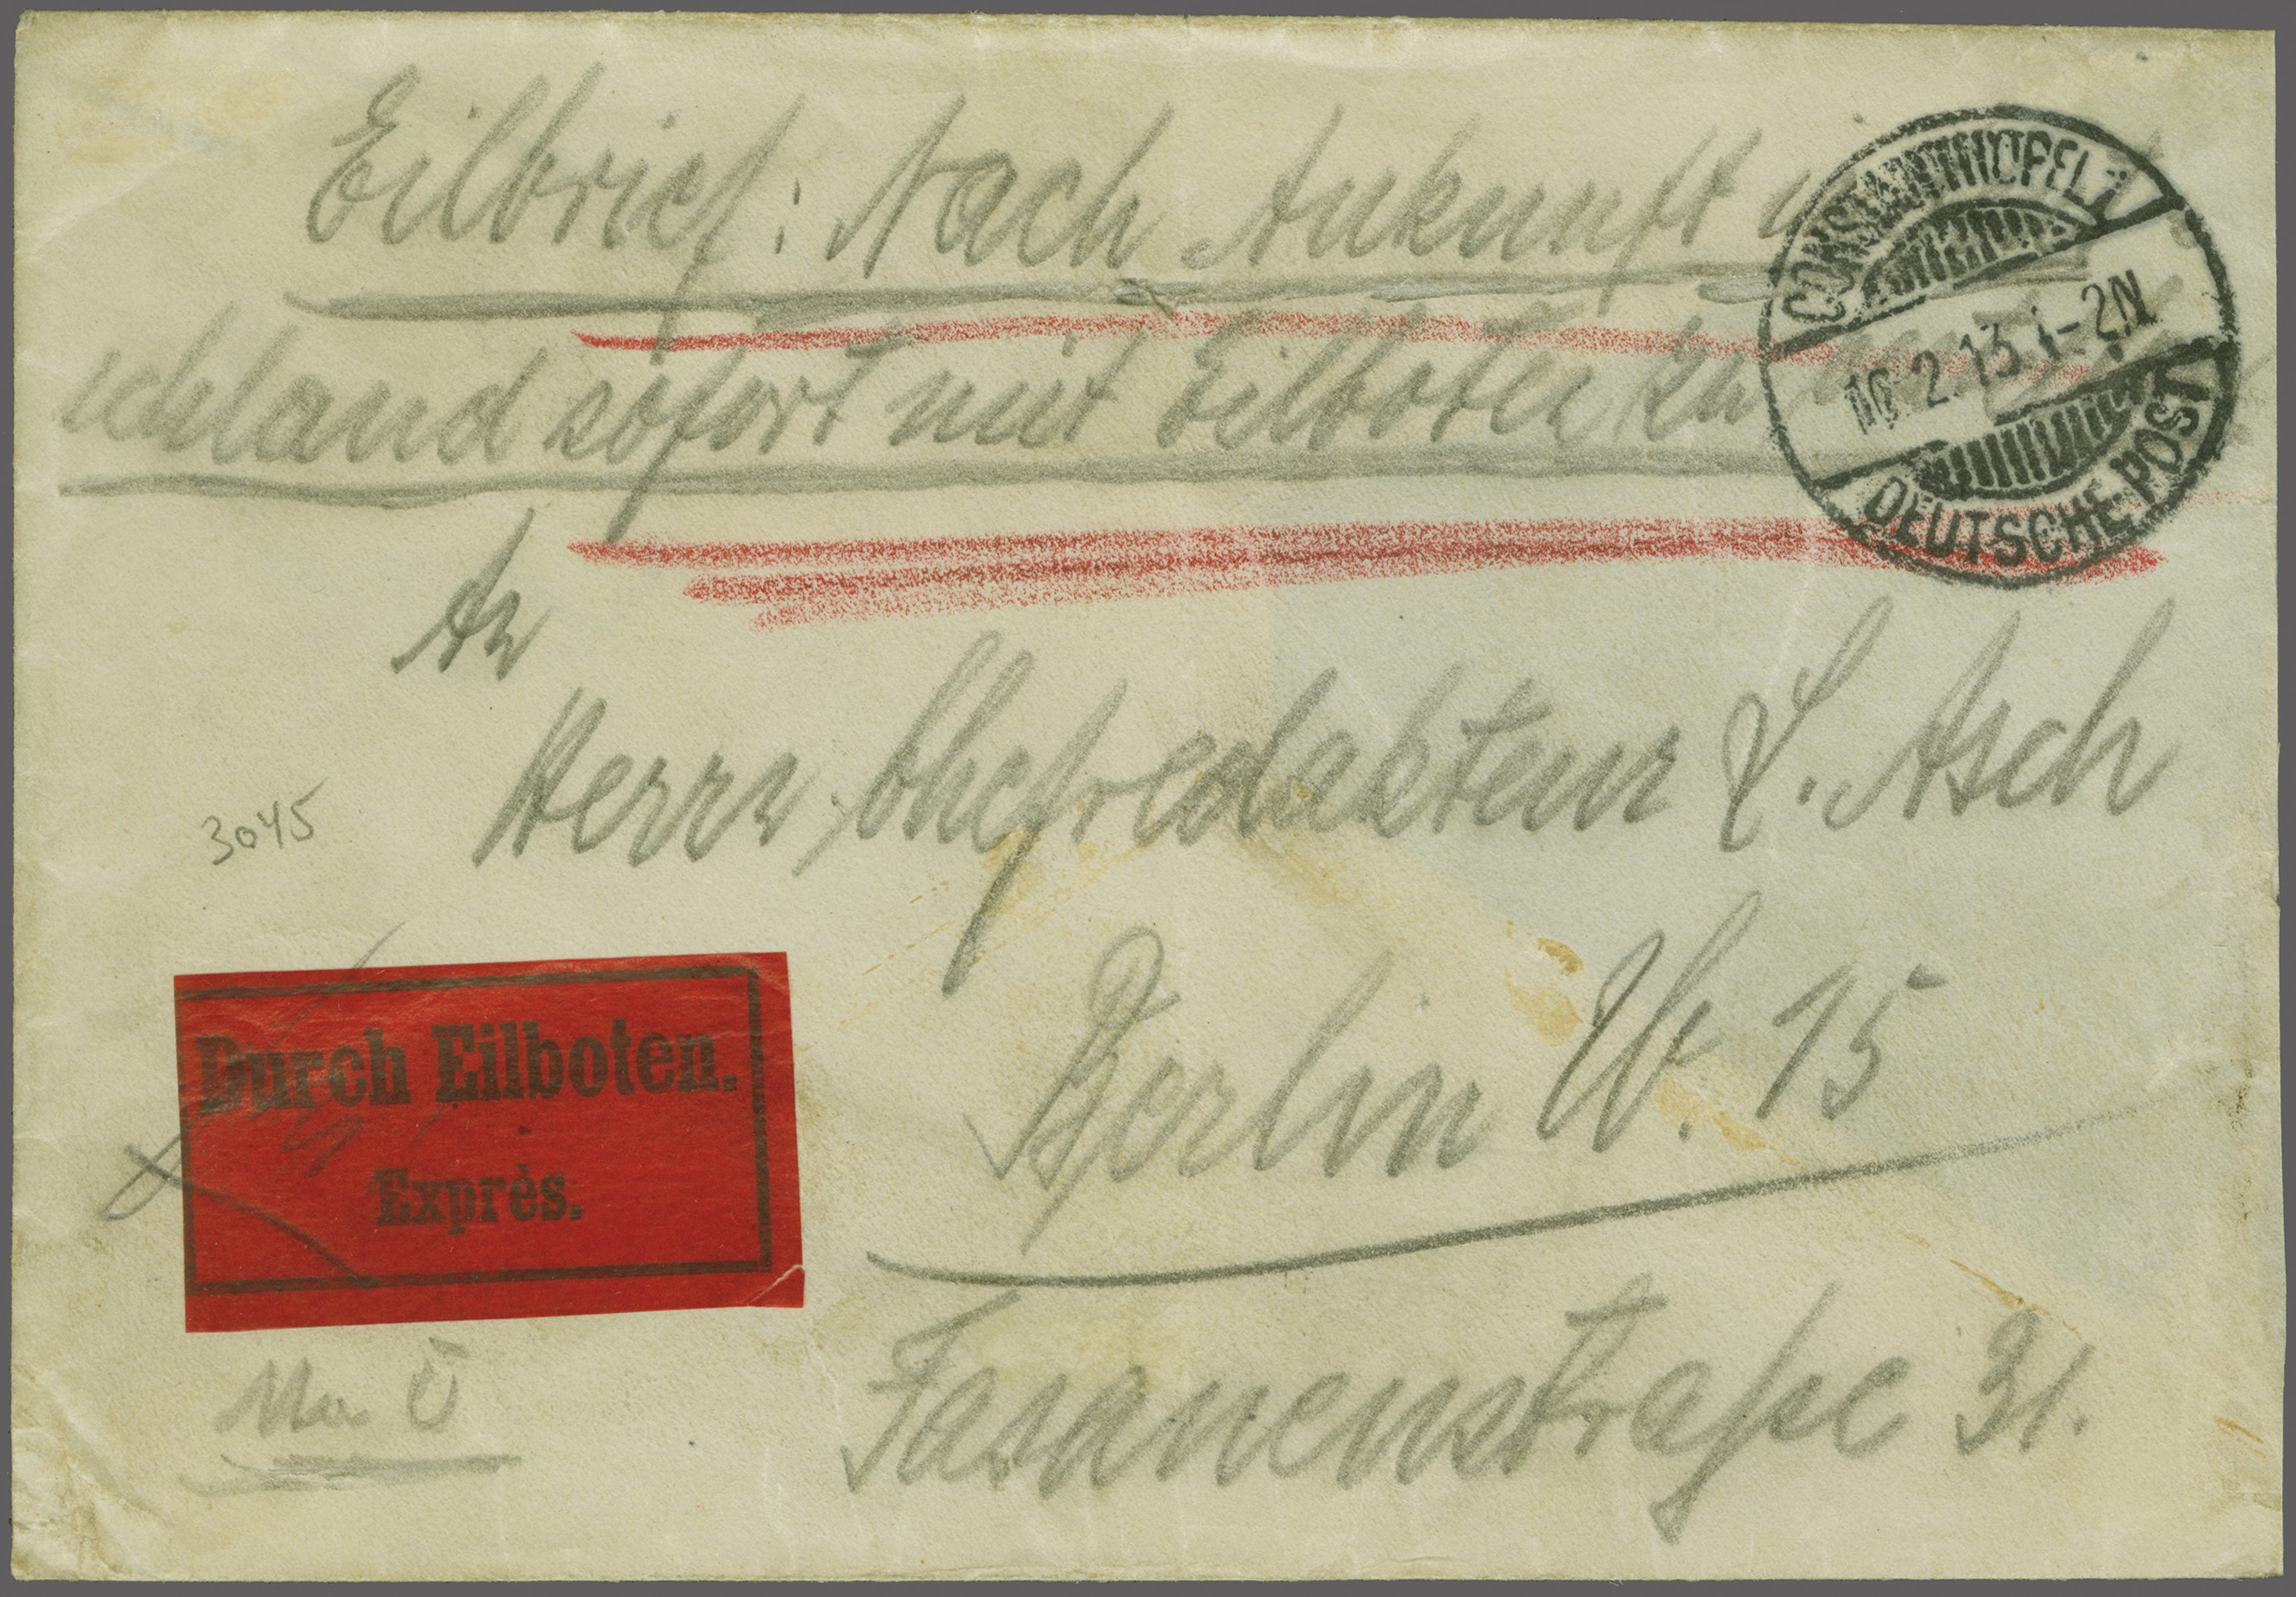 Eilbrief: Nach Ankunft
schland sofort mit Eilboten zu
CONSTANTINOPEL 1
10.2.13.1-2N
DEUTSCHE POST
An
Herrn Chefredakteur L. Asch
3045
Berlin W. 15
Durch Eilboten.
Exprès.
Fasanenstraße 31.